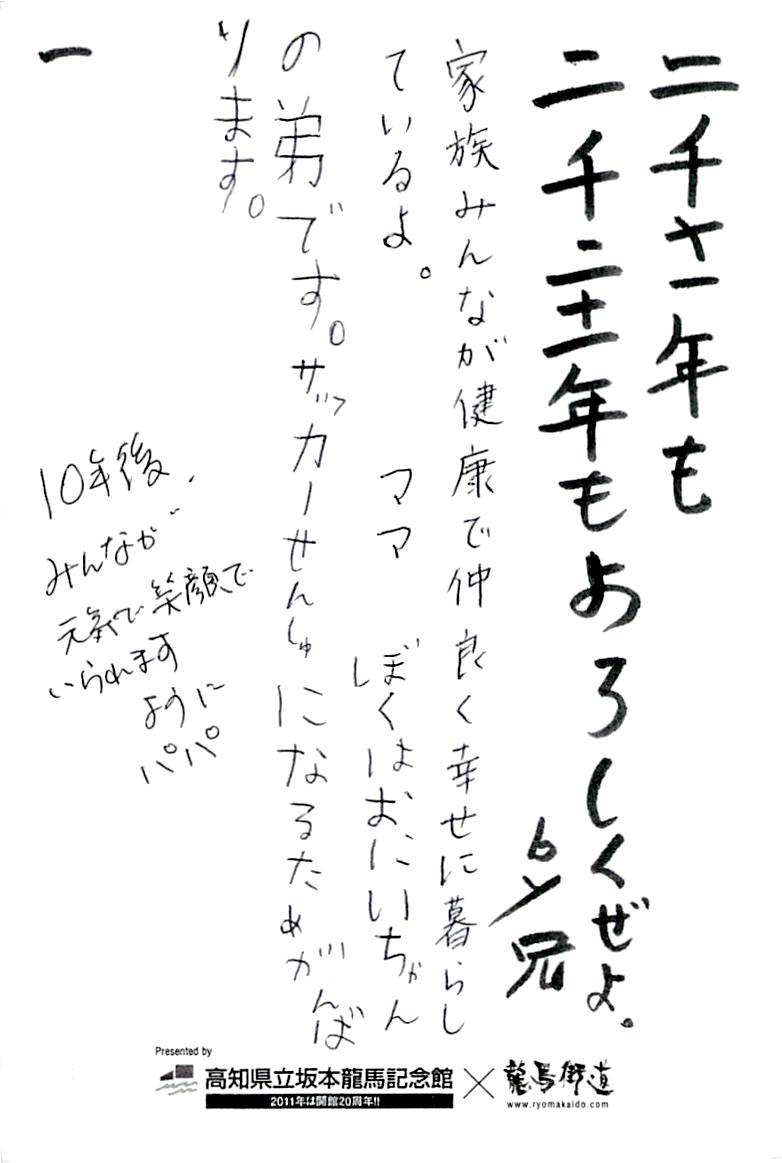 二千十一年も
二千二十一年もよろしくぜよ。
兄
家族みんなが健康で仲良く幸せに暮らし
ているよ。　ママ　ぼくはおにいちゃん
の弟です。サッカーせんしゅになるためがんば
ります。
一
10年後、
みんなが
元気で笑顔で
いられます
ように
パパ
Presented by
高知県立坂本龍馬記念館 × 龍馬街道
2011年は開館20周年!!
www.ryomakaido.com